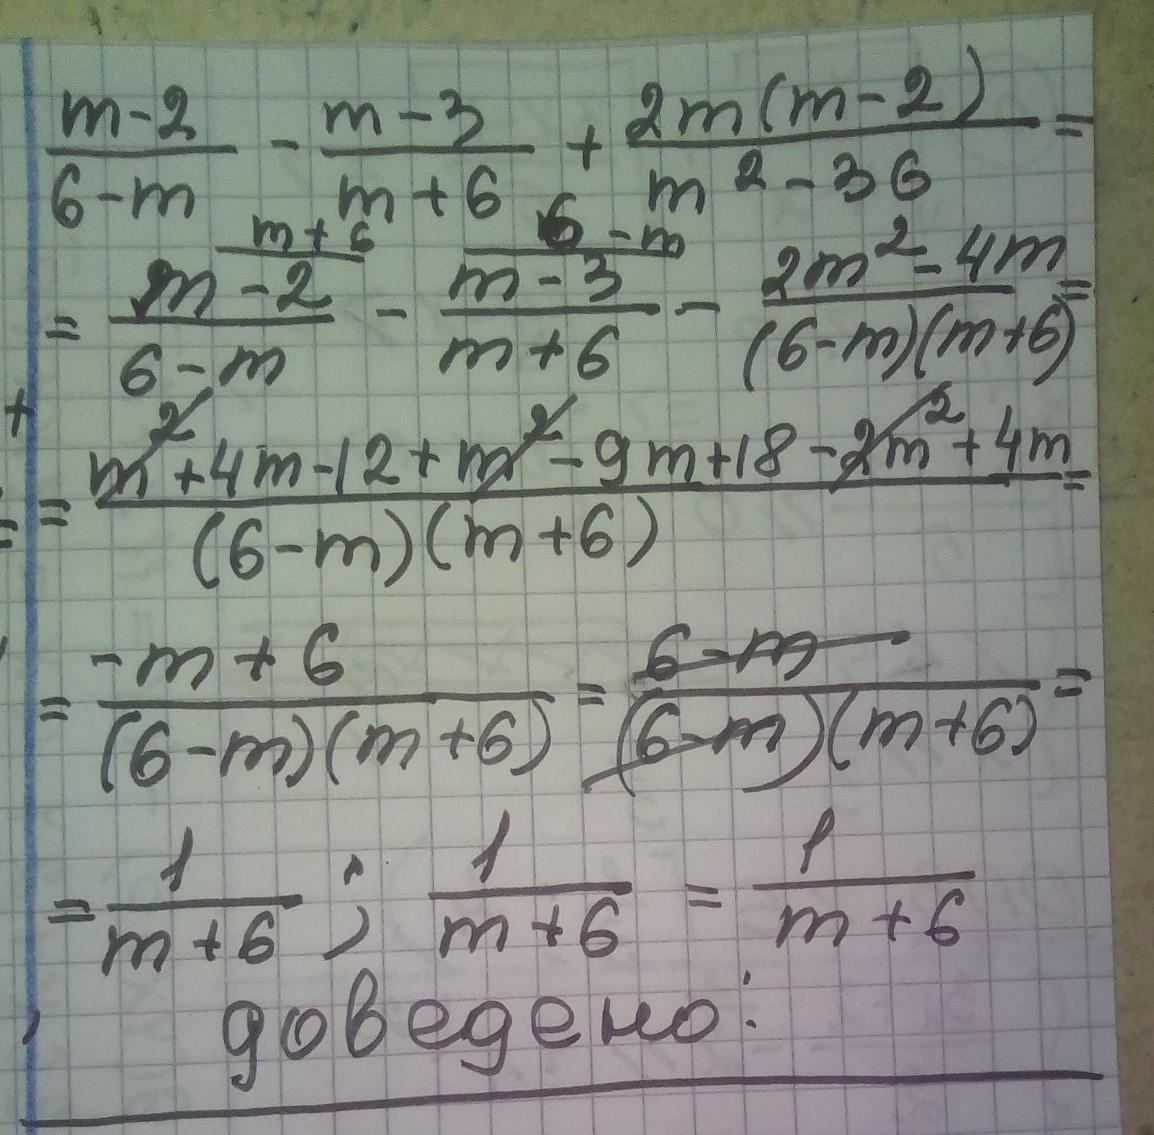 (m-2)/(6-m) - (m-3)/(m+6) + (2m(m-2))/(m²-36) =
m+6 6-m
= (m-2)/(6-m) - (m-3)/(m+6) - (2m²-4m)/((6-m)(m+6)) =
= (m²+4m-12+m²-9m+18-2m²+4m)/((6-m)(m+6)) =
= (-m+6)/((6-m)(m+6)) = (6-m)/((6-m)(m+6)) =
= 1/(m+6) ; 1/(m+6) = 1/(m+6)
доведено: